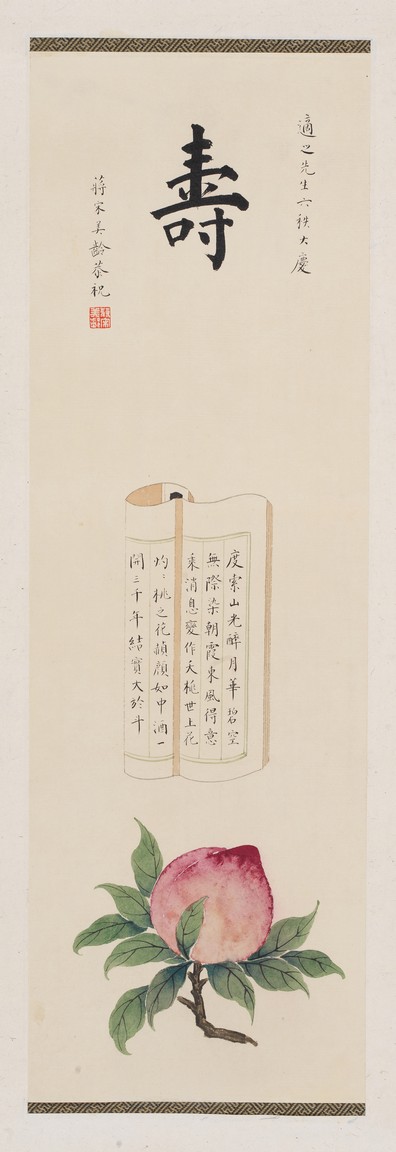 適之先生六秩大慶
壽
蔣宋美齡恭祝
度索山光醉月華碧空
無際染朝霞東風得意
乘消息變作夭桃世上花
灼〻桃之花頳顏如中酒一
開三千年結實大於斗